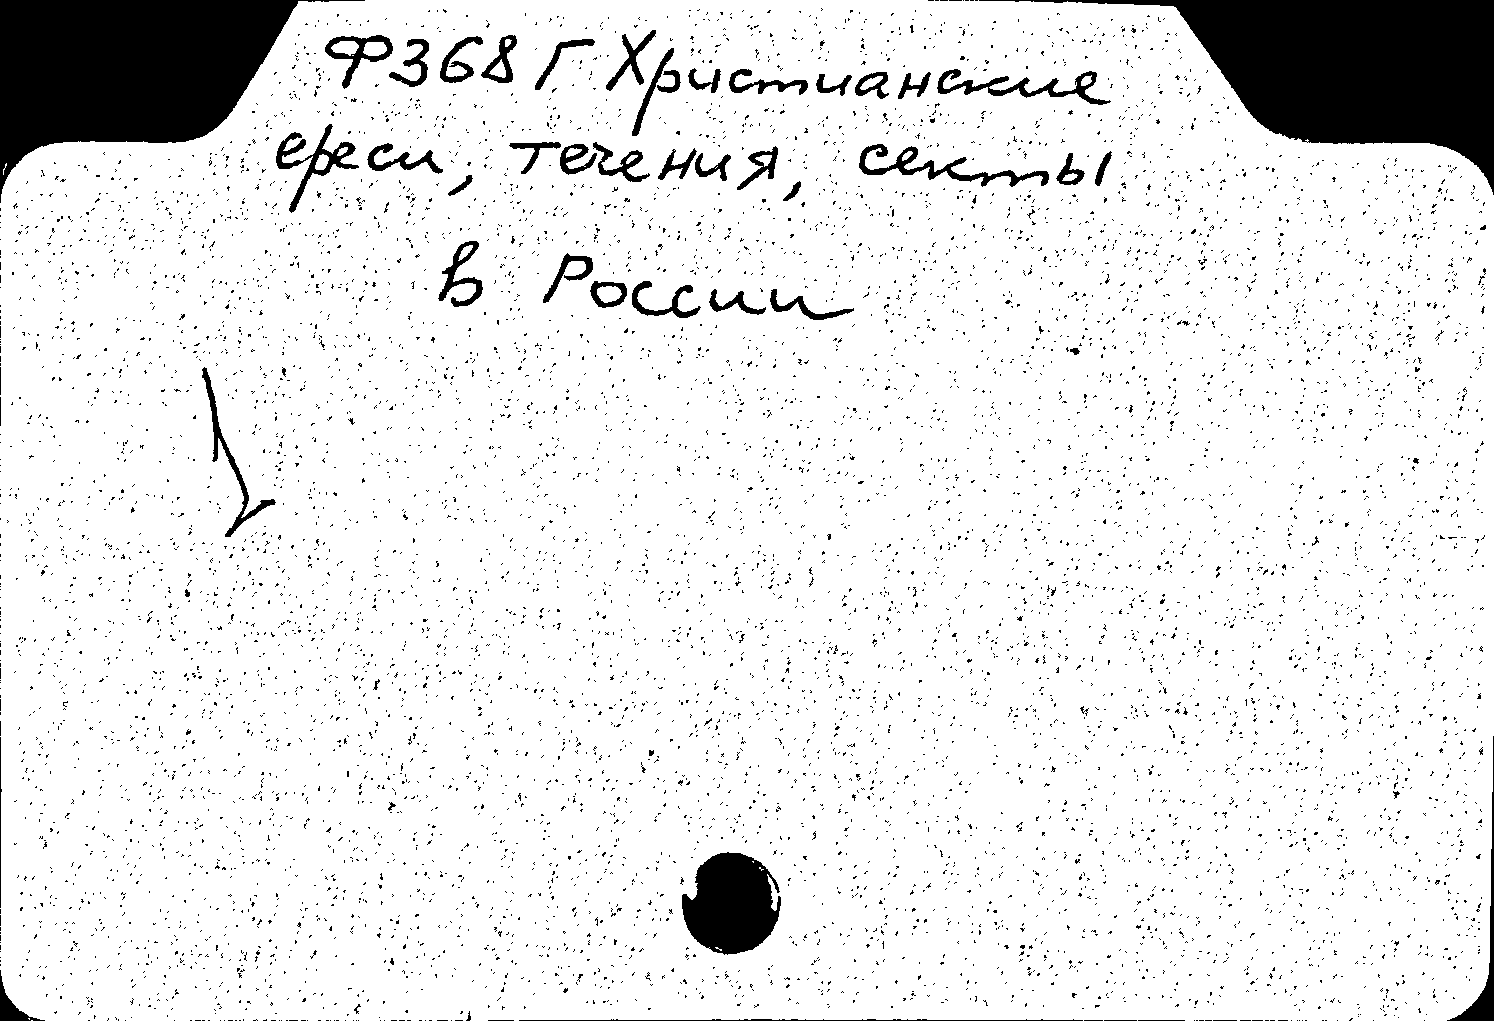 Ф368 Г Христианские
ереси, течения, секты
в России